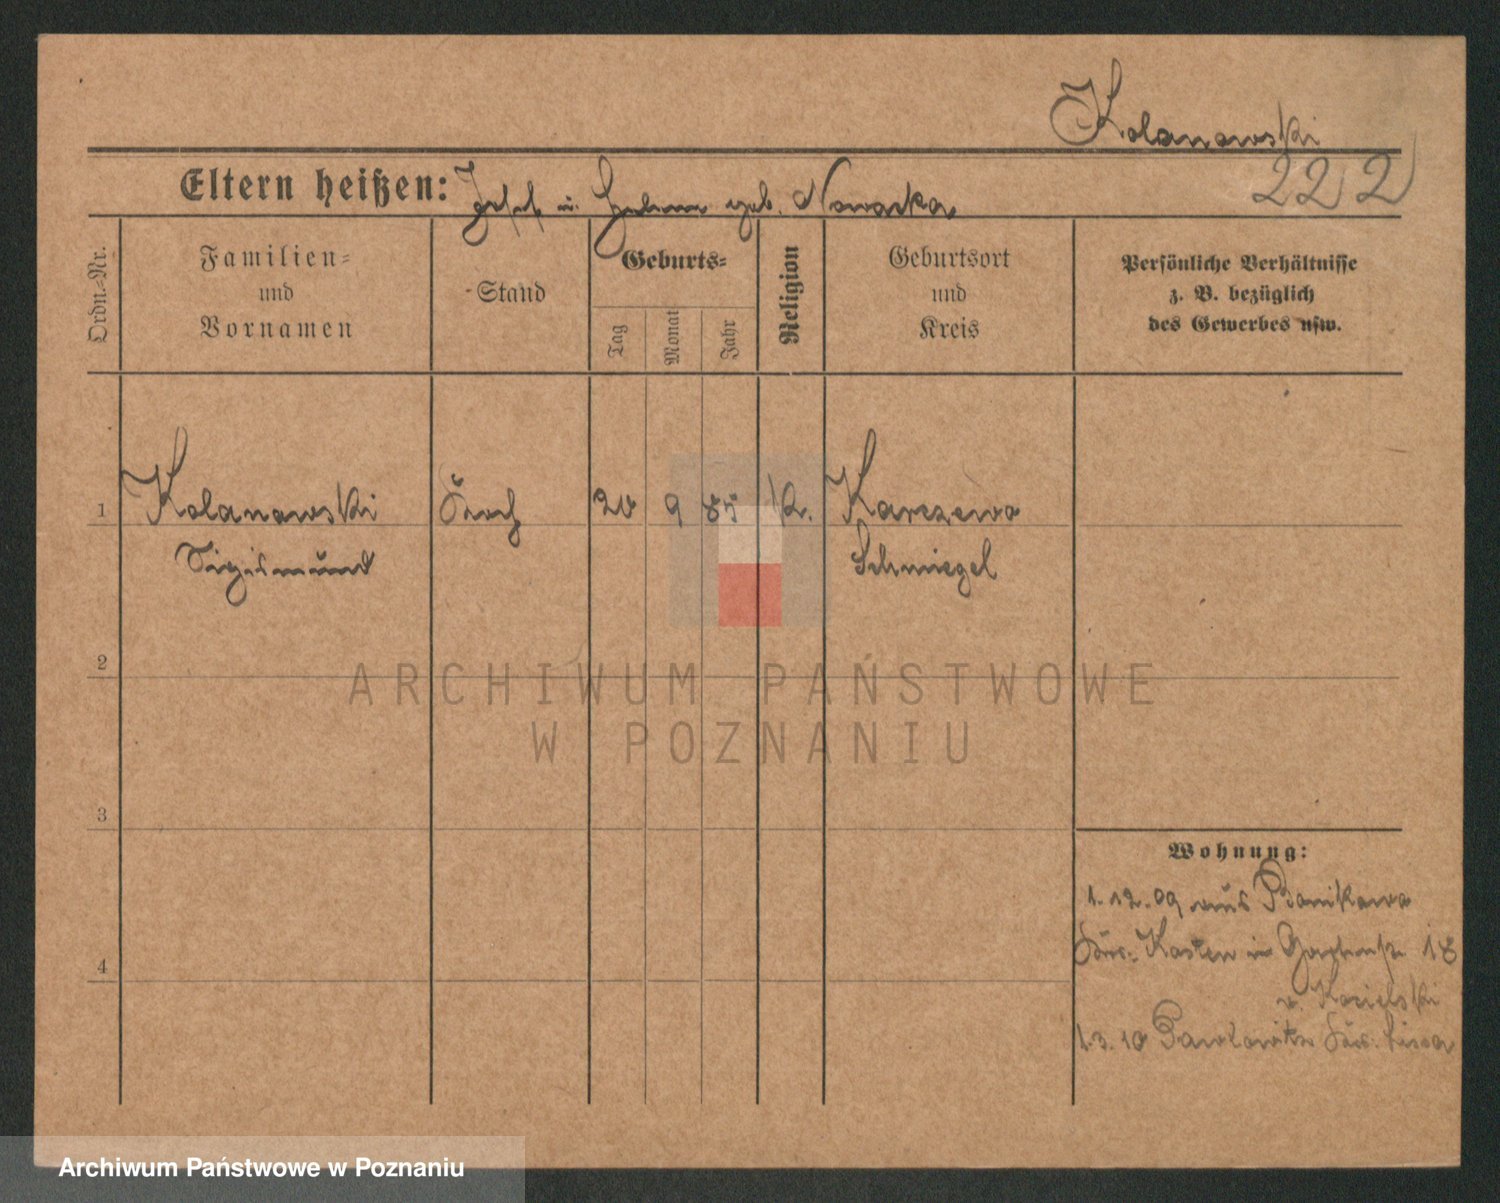 Kolanowski
222
Eltern heißen: Josef u. Helene geb. Nowacka
Ordn.-Nr.
Familien-
und
Vornamen
Stand
Geburts-
Tag
Monat
Jahr
Religion
Geburtsort
und
Kreis
Persönliche Verhältnisse
z. B. bezüglich
des Gewerbes usw.
1 Kolanowski Koch 20 9 85 k. Karczewo
Sigismund Schmiegel
2
3
4
Wohnung:
1.12.09 aus Bonikowo
Krs. Kosten in Gartenstr 18
v. Kozielski
1.3.10 Pawlowitz Krs. Lissa
ARCHIWUM PAŃSTWOWE
W POZNANIU
Archiwum Państwowe w Poznaniu